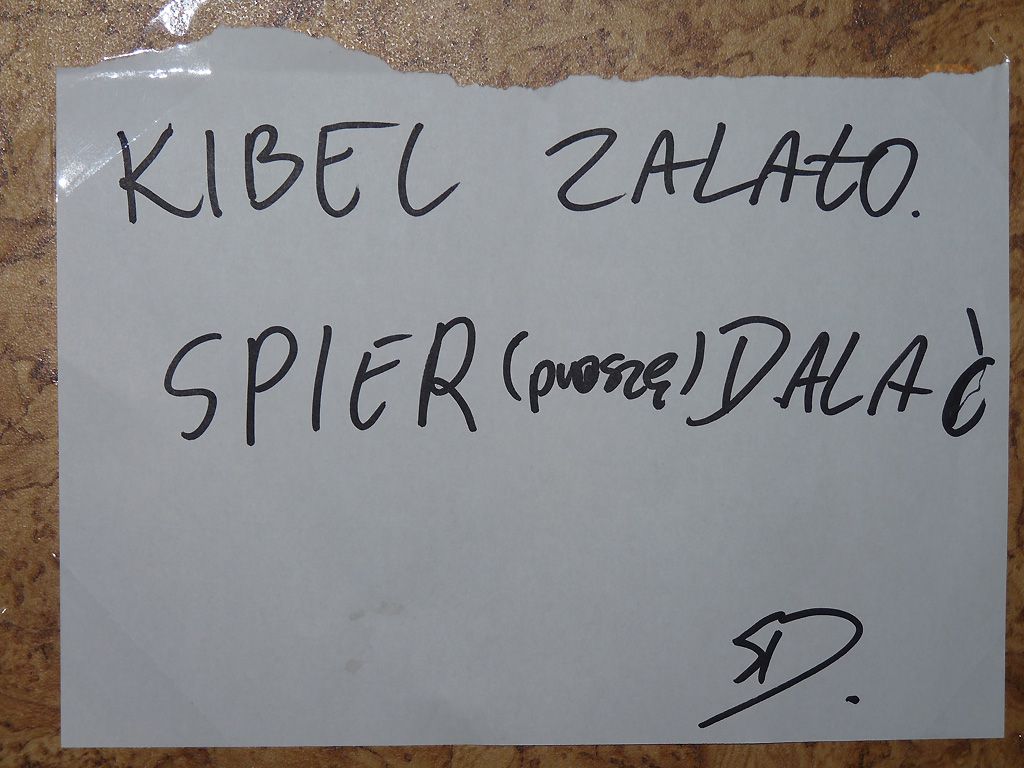 KIBEL ZALAŁO.
SPIER (proszę) DALAĆ
SD.